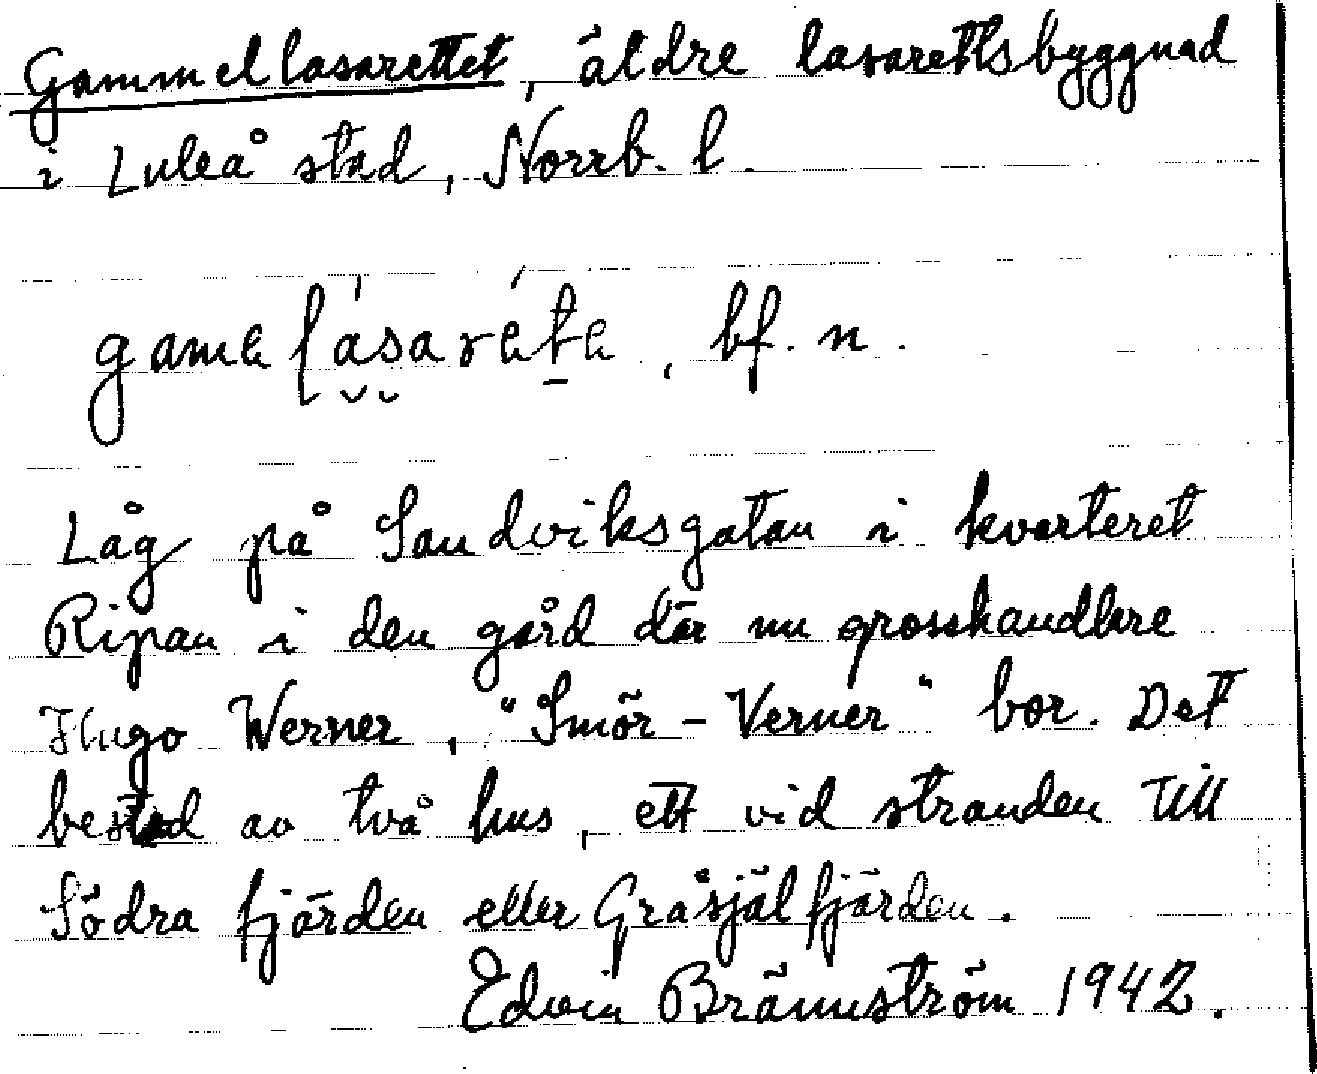 Gammellasarettet, äldre lasarettsbyggnad
i Luleå stad, Norrb. l.
bf. n.
Låg på Sandviksgatan i kvarteret
Ripan i den gård där nu grosshandlare
Hugo Werner, "Smör-Verner" bor. Det
bestod av två hus, ett vid stranden till
Södra fjärden eller Gråsjälfjärden.
Edvin Brännström 1942.